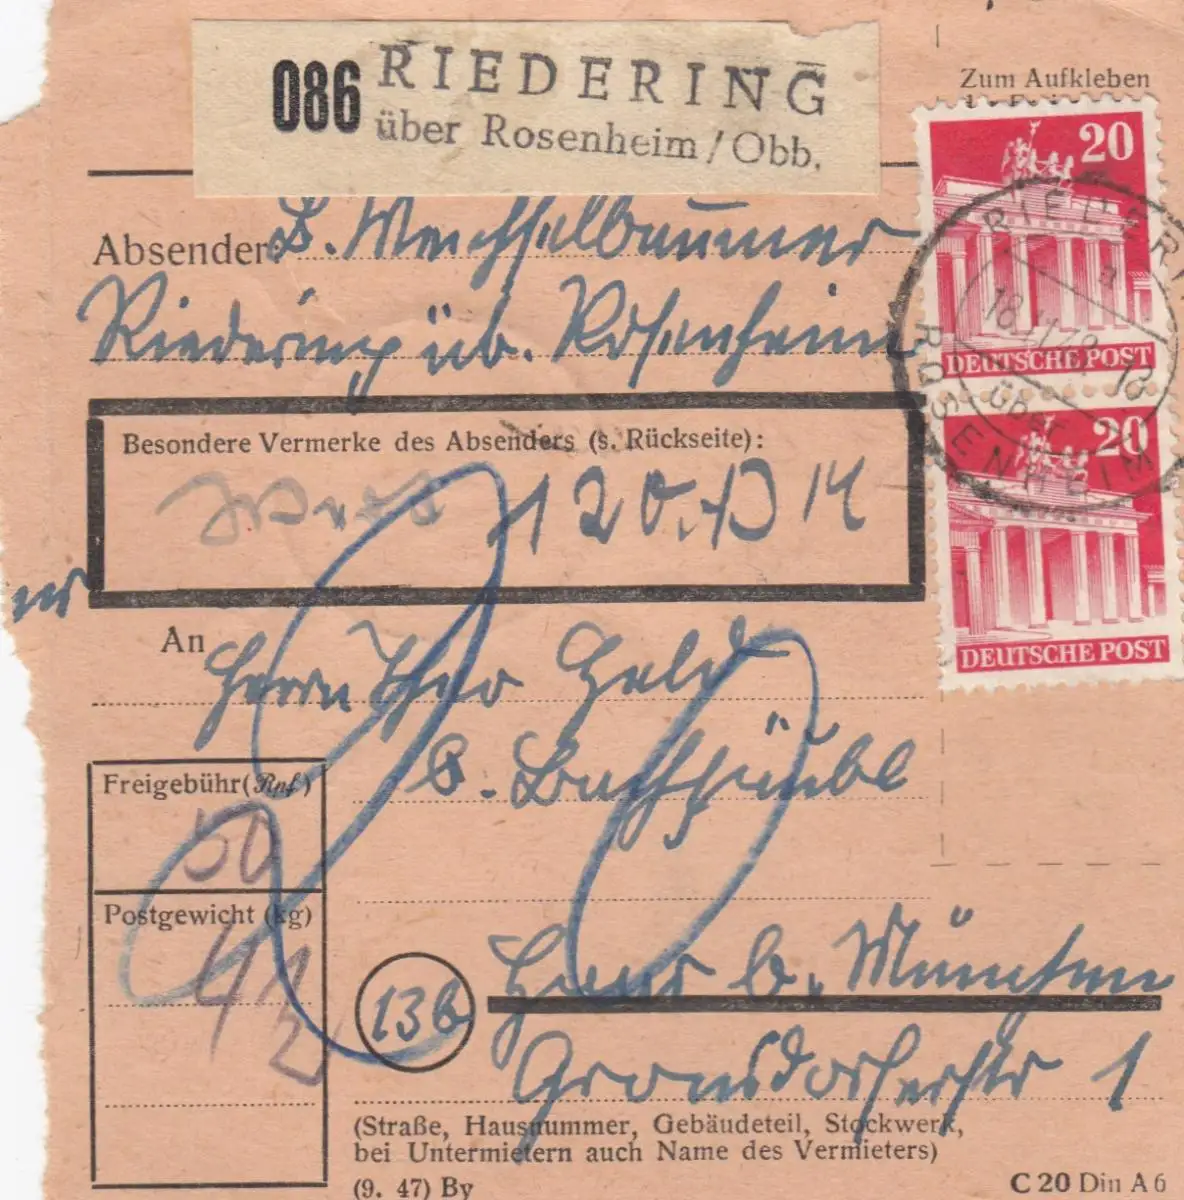 086 RIEDERING
über Rosenheim/Obb.
Zum Aufkleben
20
DEUTSCHE POST
20
DEUTSCHE POST
RIEDERING
über
ROSENHEIM
Absender B. Weichselbaumer
Riedering üb. Rosenheim
Besondere Vermerke des Absenders (s. Rückseite):
Wert 120.- DM
An Herrn Theo Held
b. Bachhäubl
Freigebühr (Rpf)
50
Postgewicht (kg)
4 1/2
13b
Haar b. München
Gronsdorferstr 1
(Straße, Hausnummer, Gebäudeteil, Stockwerk,
bei Untermietern auch Name des Vermieters)
(9. 47) By
C 20 Din A 6